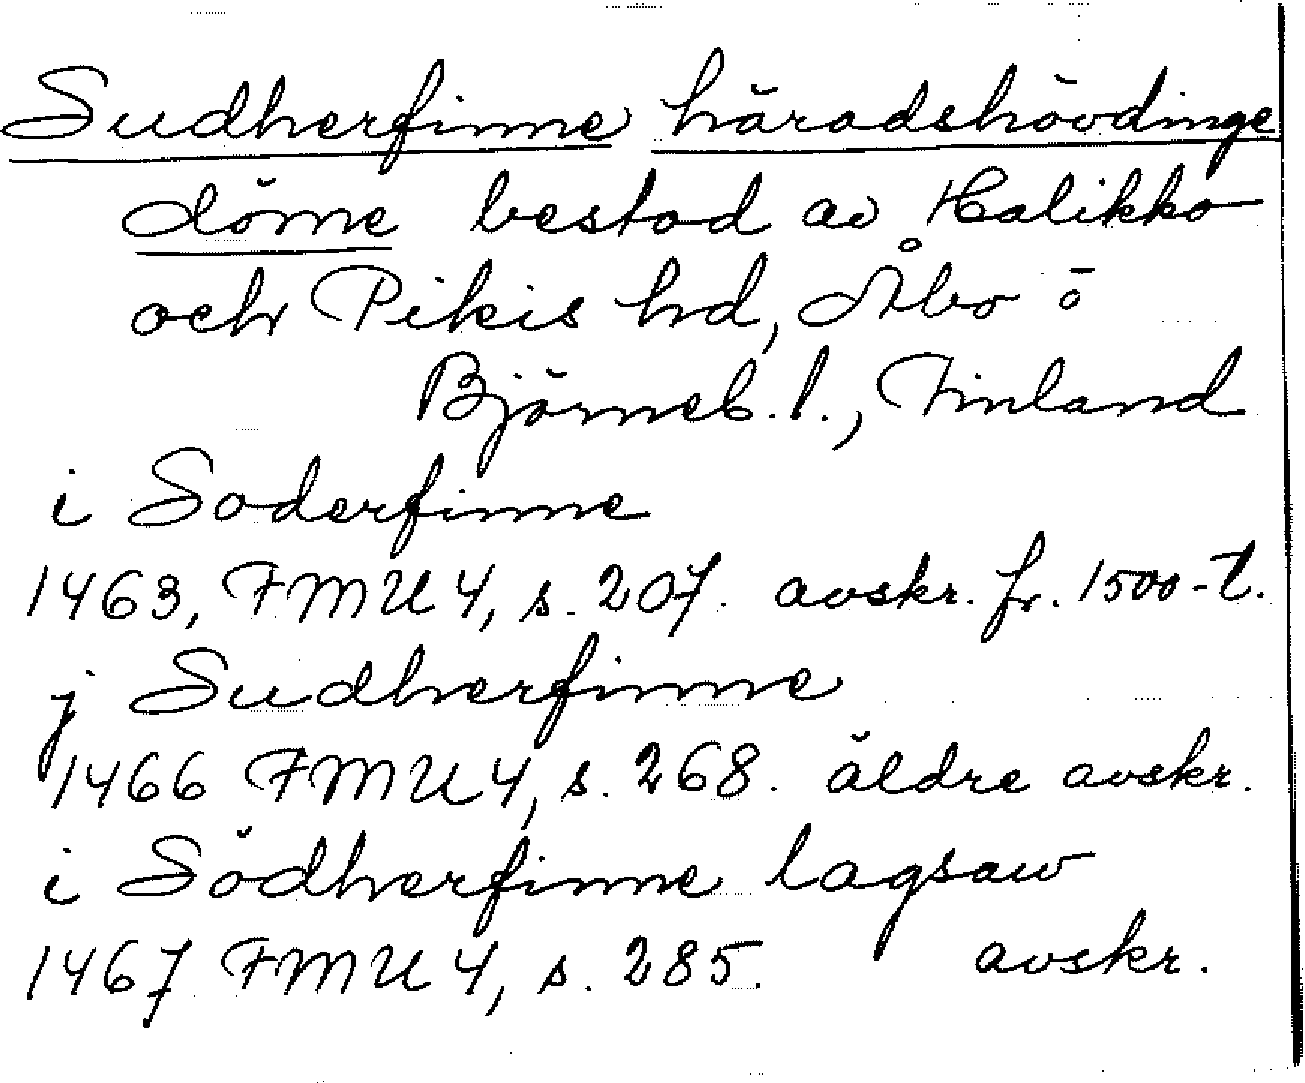 Sudherfinne häradshövdinge
döme bestod av Halikko
och Pikis hd, Åbo o
Björneb. l., Finland
i Soderfinne
1463, FMU 4, s. 207. avskr. fr. 1500-t.
j Sudherfinne
1466 FMU 4, s. 268. äldre avskr.
i Södherfinne lagsaw
1467 FMU 4, s. 285. avskr.